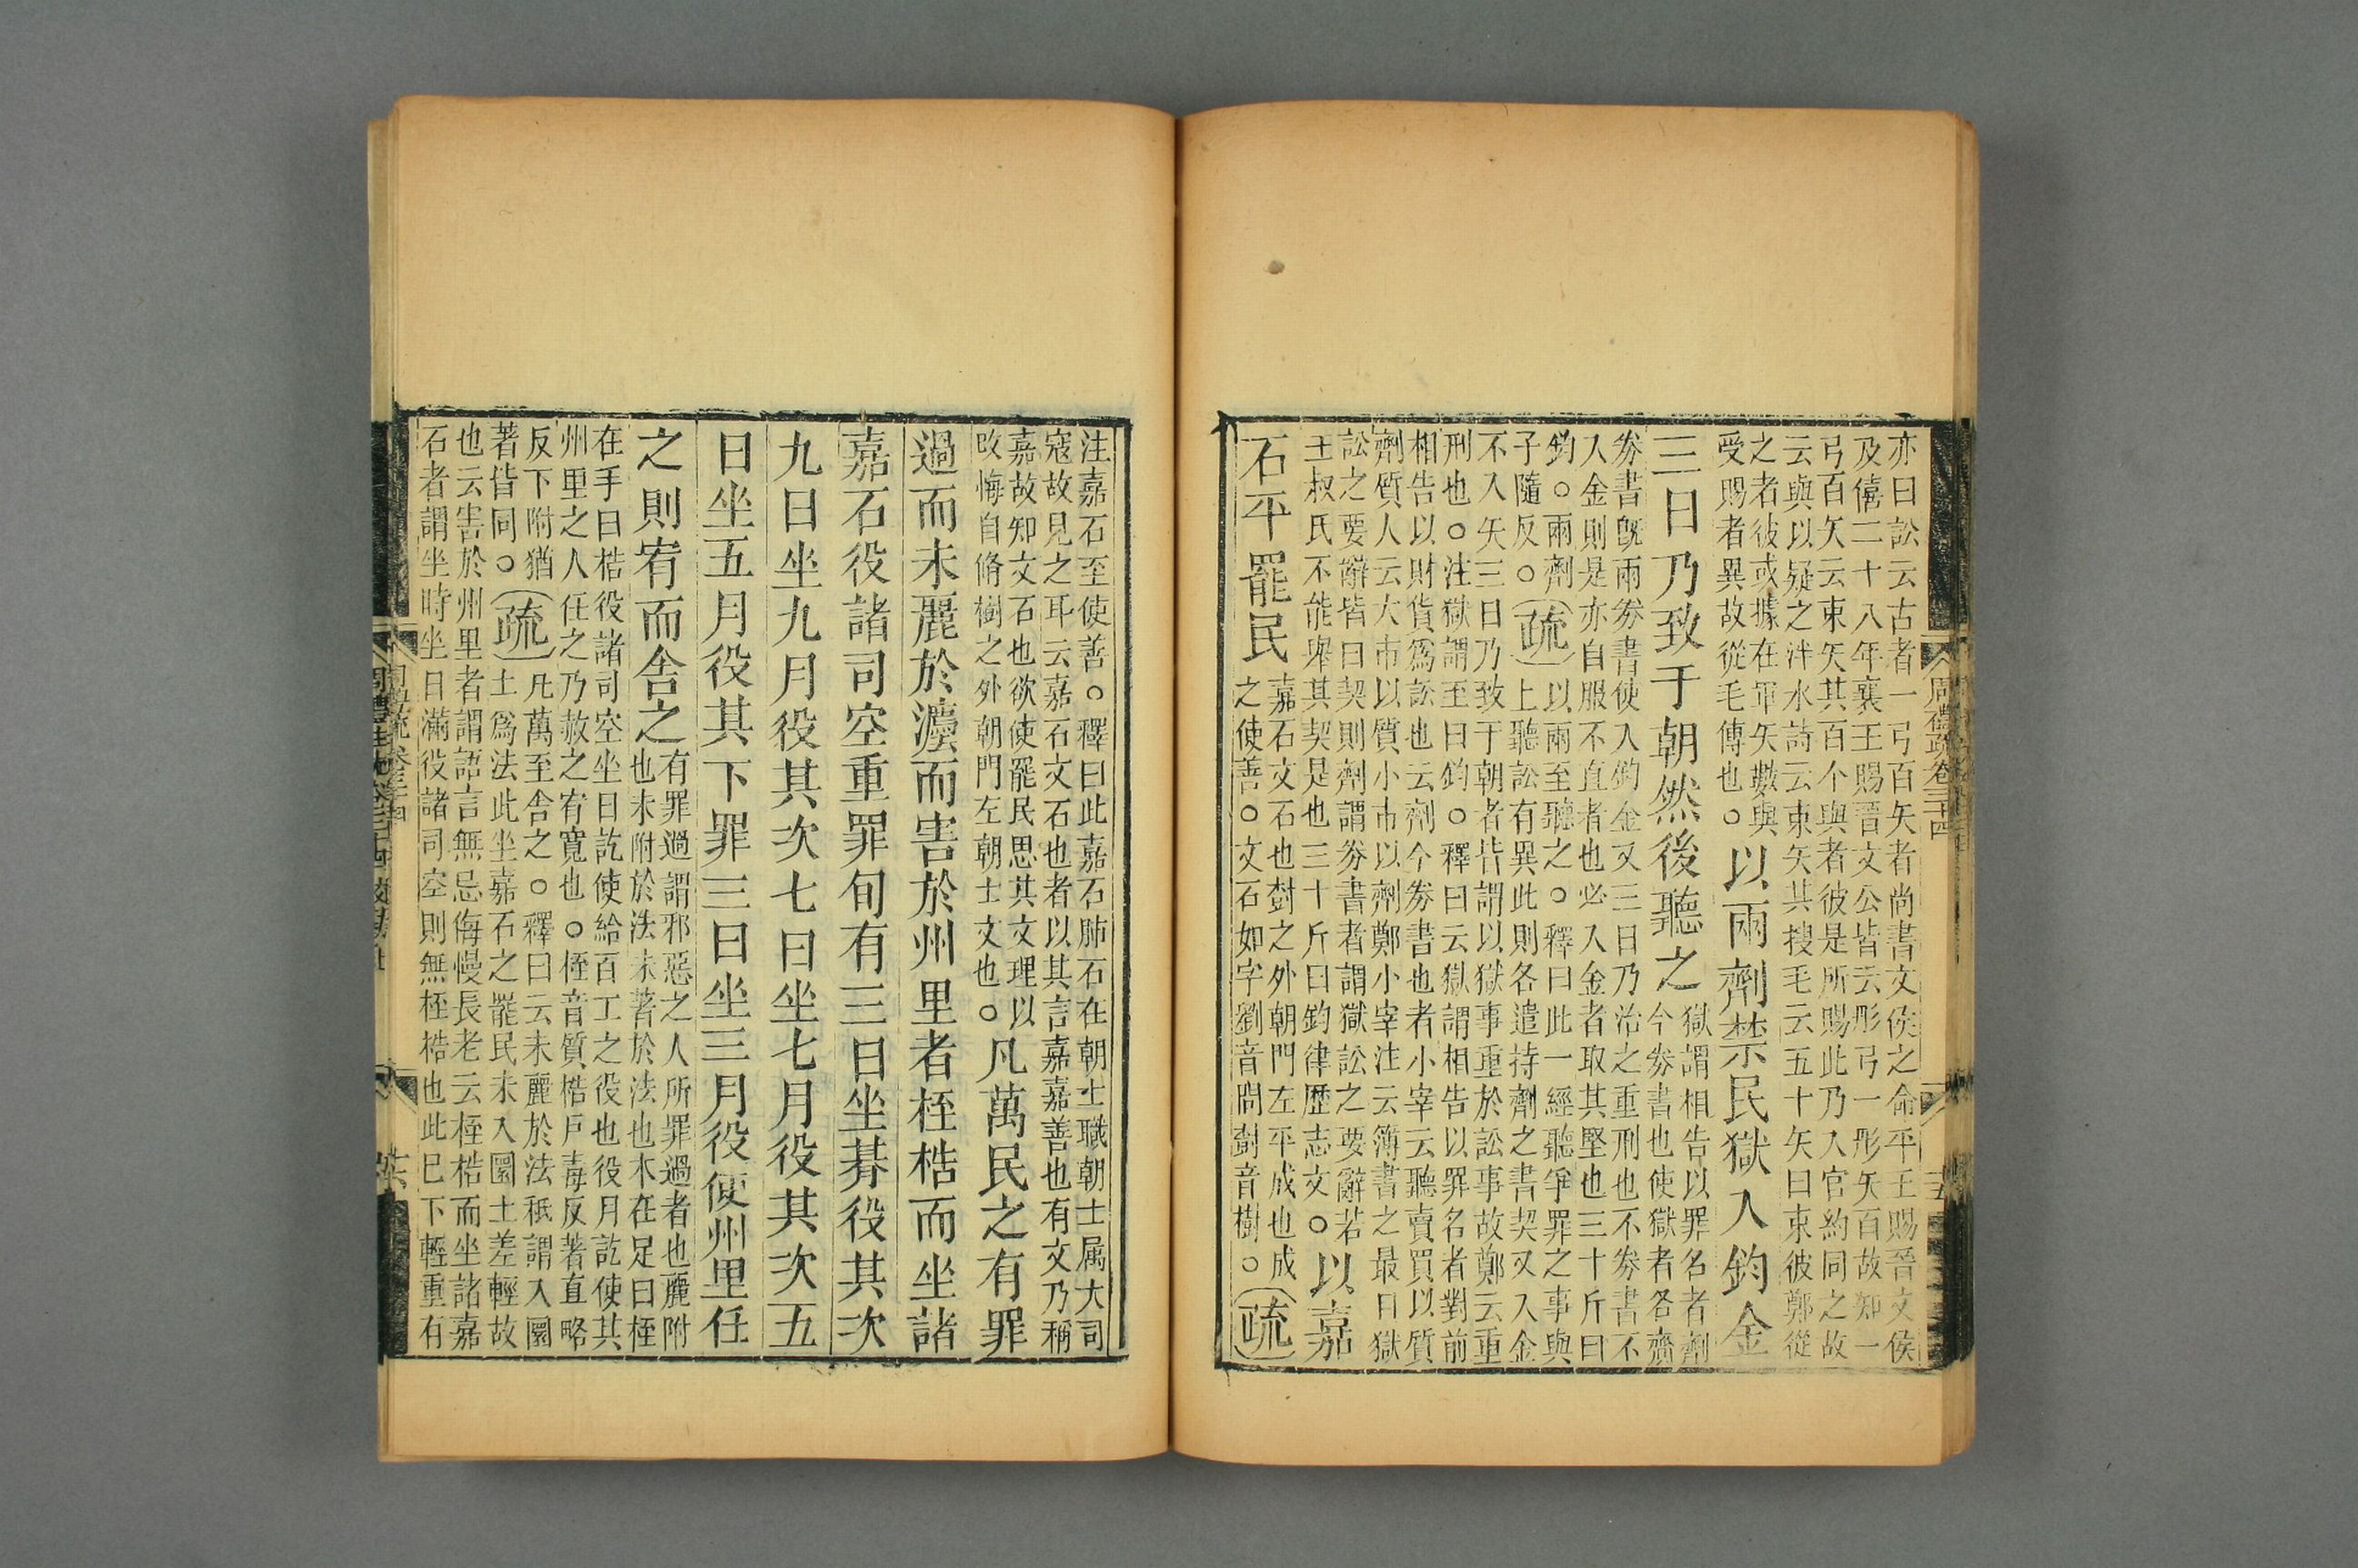 周禮疏卷三十四
十五
亦曰訟云古者一弓百矢者尚書文侯之命平王賜晉文侯
及僖二十八年襄王賜晉文公皆云彤弓一彤矢百故知一
弓百矢云束矢其百个與者彼是所賜此乃入官約同之故
云與以疑之泮水詩云束矢其搜毛云五十矢曰束彼鄭從
之者彼或據在軍矢數與
受賜者異故從毛傳也。
以兩劑禁民獄入鈞金
三日乃致于朝然後聽之
獄謂相告以罪名者劑
今券書也使獄者各齎
券書旣兩券書使入鈞金又三日乃治之重刑也不券書不
入金則是亦自服不直者也必入金者取其堅也三十斤曰
鈞。兩劑。
子隨反。
疏
以兩至聽之。釋曰此一經聽爭罪之事與
上聽訟有異此則各遣持劑之書契又入金
不入矢三日乃致于朝者皆謂以獄事重於訟事故鄭云重
刑也。注獄謂至曰鈞。釋曰云獄謂相告以罪名者對前
相告以財貨爲訟也云劑今券書也者小宰云聽賣買以質
劑質人云大市以質小市以劑鄭小宰注云簿書之最曰獄
訟之要辭皆曰契則劑謂券書者謂獄訟之要辭若
王叔氏不能舉其契是也三十斤曰鈞律歷志文。
以嘉
石平罷民
嘉石文石也尌之外朝門左平成也成
之使善。文石如字劉音問尌音樹。
疏
注嘉石至使善。釋曰此嘉石肺石在朝士職朝士属大司
寇故見之耳云嘉石文石也者以其言嘉嘉善也有文乃稱
嘉故知文石也欲使罷民思其文理以
改悔自脩樹之外朝門左朝士文也。
凡萬民之有罪
過而未麗於灋而害於州里者桎梏而坐諸
嘉石役諸司空重罪旬有三日坐朞役其次
九日坐九月役其次七日坐七月役其次五
日坐五月役其下罪三日坐三月役使州里任
之則宥而舍之
有罪過謂邪惡之人所罪過者也麗附
也未附於法未著於法也木在足曰桎
在手曰梏役諸司空坐日訖使給百工之役也役月訖使其
州里之人任之乃赦之宥寬也。桎音質梏戶毒反著直略
反下附猶
著皆同。
疏
凡萬至舍之。釋曰云未麗於法秪謂入圜
土爲法此坐嘉石之罷民未入圜土差輕故
也云害於州里者謂語言無忌侮慢長老云桎梏而坐諸嘉
石者謂坐時坐日滿役諸司空則無桎梏也此巳下輕重有